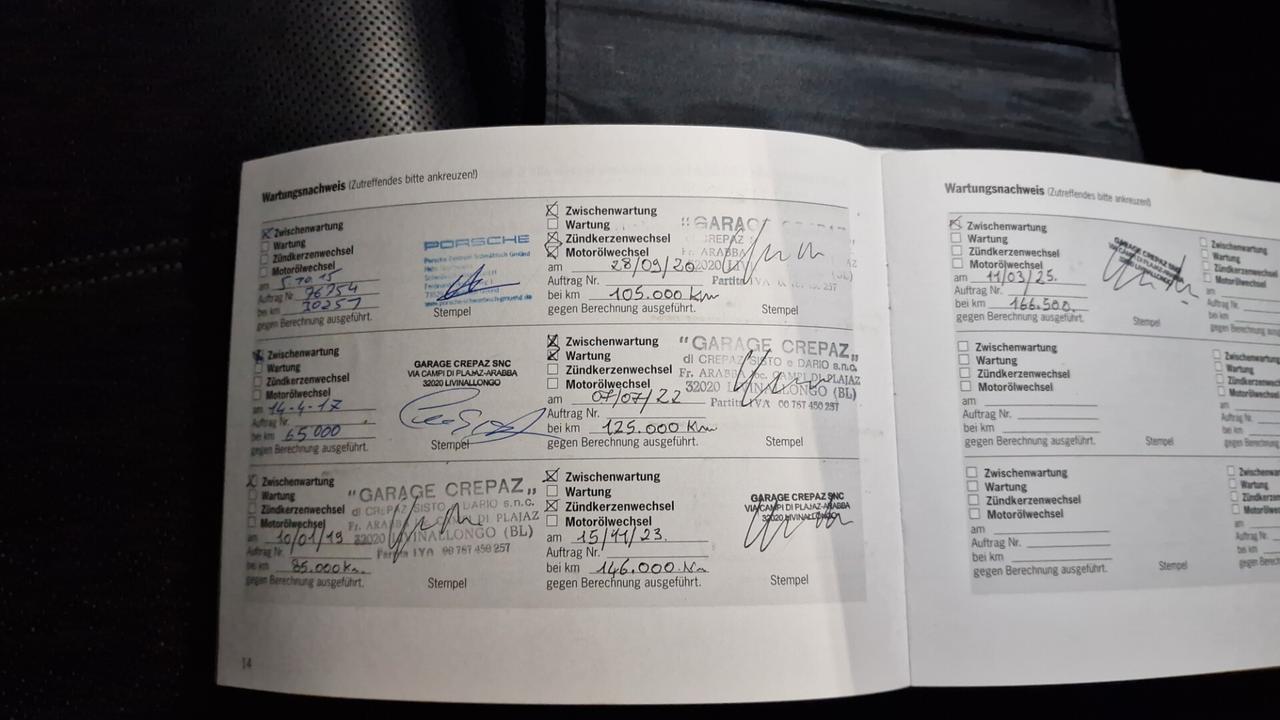 Wartungsnachweis (Zutreffendes bitte ankreuzen!)
Zwischenwartung
Wartung
Zündkerzenwechsel
Motorölwechsel
am 5 10 15
Auftrag Nr. 76754
bei km 30257
gegen Berechnung ausgeführt.
PORSCHE
Porsche Zentrum Schwäbisch Gmünd
Stempel
Zwischenwartung
Wartung
Zündkerzenwechsel
Motorölwechsel
am 14-4-17
Auftrag Nr.
bei km 65000
gegen Berechnung ausgeführt.
GARAGE CREPAZ SNC
VIA CAMPI DI PLAJAZ-ARABBA
32020 LIVINALLONGO
Stempel
Zwischenwartung
Wartung
Zündkerzenwechsel
Motorölwechsel
am 10/01/19
Auftrag Nr.
bei km 85.000 Km
gegen Berechnung ausgeführt.
"GARAGE CREPAZ„
di CREPAZ SISTO e DARIO s.n.c.
Fr. ARABBA DI PLAJAZ
32020 LIVINALLONGO (BL)
Partita IVA 00 767 450 257
Stempel
Zwischenwartung
Wartung
Zündkerzenwechsel
Motorölwechsel
am 28/09/20
Auftrag Nr.
bei km 105.000 Km
gegen Berechnung ausgeführt.
"GARAGE
CREPAZ
Fr. ARABBA
32020 (BL)
Partita IVA 00 767 450 257
Stempel
Zwischenwartung
Wartung
Zündkerzenwechsel
Motorölwechsel
am 07/07/22
Auftrag Nr.
bei km 125.000 Km
gegen Berechnung ausgeführt.
"GARAGE CREPAZ„
di CREPAZ SISTO e DARIO s.n.c.
Fr. ARABBA Loc. CAMPI DI PLAJAZ
32020 LIVINALLONGO (BL)
Partita IVA 00 767 450 257
Stempel
Zwischenwartung
Wartung
Zündkerzenwechsel
Motorölwechsel
am 15/11/23.
Auftrag Nr.
bei km 146.000 Km
gegen Berechnung ausgeführt.
GARAGE CREPAZ SNC
VIA CAMPI DI PLAJAZ-ARABBA
32020 LIVINALLONGO
Stempel
14
Wartungsnachweis (Zutreffendes bitte ankreuzen!)
Zwischenwartung
Wartung
Zündkerzenwechsel
Motorölwechsel
am 11/03/25.
Auftrag Nr.
bei km 166.500.
gegen Berechnung ausgeführt.
GARAGE CREPAZ SNC
VIA CAMPI DI PLAJAZ-ARABBA
32020 LIVINALLONGO
Stempel
Zwischenwartung
Wartung
Zündkerzenwechsel
Motorölwechsel
am
Auftrag Nr.
bei km
gegen Berechnung ausgeführt.
Stempel
Zwischenwartung
Wartung
Zündkerzenwechsel
Motorölwechsel
am
Auftrag Nr.
bei km
gegen Berechnung ausgeführt.
Stempel
Wartung
Motorölwechsel
am
Auftrag Nr.
bei km
Wartung
am
Auftrag Nr.
bei km
Wartung
am
Auftrag Nr.
bei km